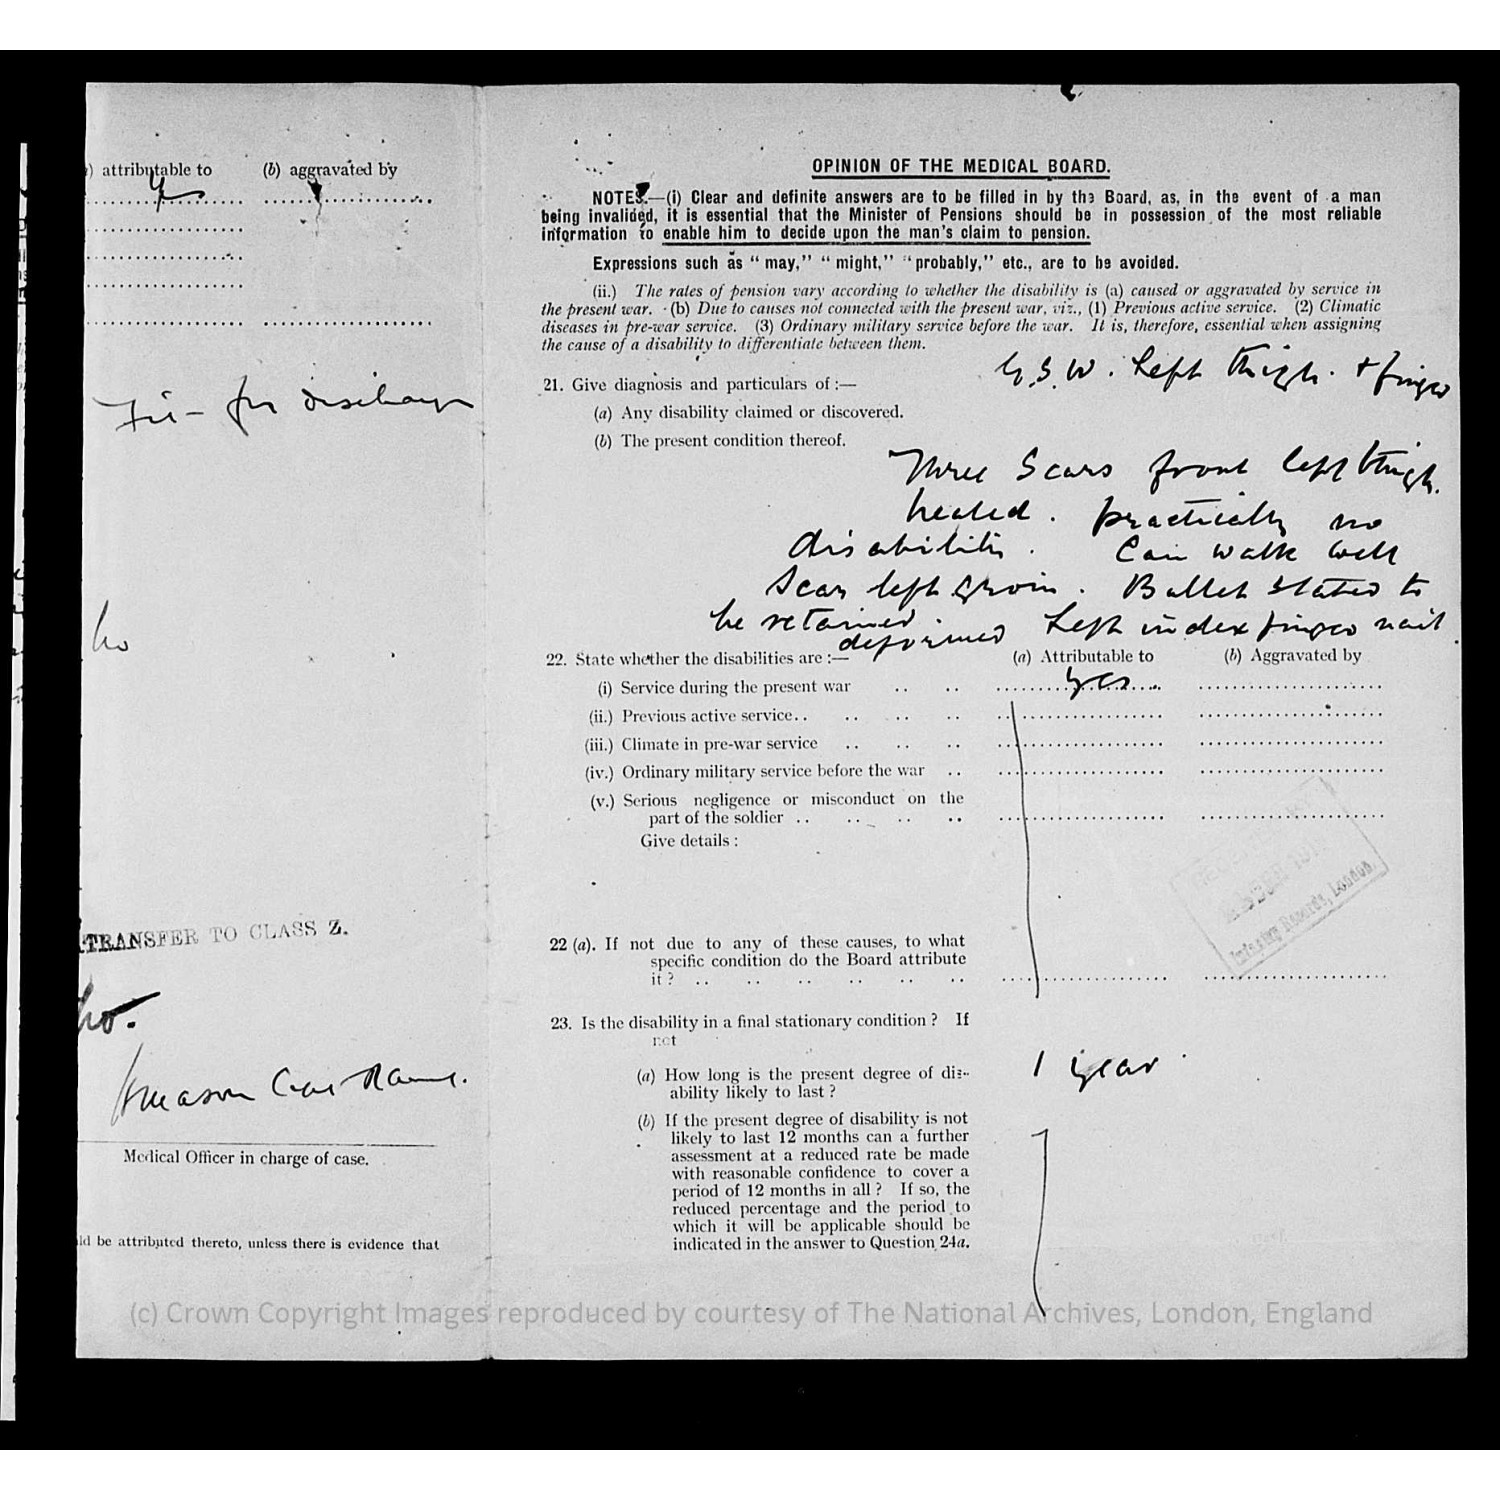 ) attributable to (b) aggravated by
Yes
Fit for discharge
no
TRANSFER TO CLASS Z.
no.
Capt RAMC.
Medical Officer in charge of case.
ld be attributed thereto, unless there is evidence that
OPINION OF THE MEDICAL BOARD.
NOTES.—(i) Clear and definite answers are to be filled in by the Board, as, in the event of a man
being invalided, it is essential that the Minister of Pensions should be in possession of the most reliable
information to enable him to decide upon the man's claim to pension.
Expressions such as "may," "might," "probably," etc., are to be avoided.
(ii.) The rates of pension vary according to whether the disability is (a) caused or aggravated by service in
the present war. (b) Due to causes not connected with the present war, viz., (1) Previous active service. (2) Climatic
diseases in pre-war service. (3) Ordinary military service before the war. It is, therefore, essential when assigning
the cause of a disability to differentiate between them.
G.S.W. Left thigh. + finger
21. Give diagnosis and particulars of :—
(a) Any disability claimed or discovered.
(b) The present condition thereof.
Three Scars front left thigh.
healed. practically no
disability. Can walk well
Scar left groin. Bullet stated to
be retained Left index finger nail
deformed
22. State whether the disabilities are :— (a) Attributable to (b) Aggravated by
(i) Service during the present war .. .. yes
(ii.) Previous active service.. .. .. ..
(iii.) Climate in pre-war service .. .. ..
(iv.) Ordinary military service before the war ..
(v.) Serious negligence or misconduct on the
part of the soldier .. .. .. ..
Give details :
Infantry Records, London.
22 (a). If not due to any of these causes, to what
specific condition do the Board attribute
it ? .. .. .. .. .. ..
23. Is the disability in a final stationary condition ? If
not
(a) How long is the present degree of dis-
ability likely to last ?
1 year
(b) If the present degree of disability is not
likely to last 12 months can a further
assessment at a reduced rate be made
with reasonable confidence to cover a
period of 12 months in all ? If so, the
reduced percentage and the period to
which it will be applicable should be
indicated in the answer to Question 24a.
(c) Crown Copyright Images reproduced by courtesy of The National Archives, London, England